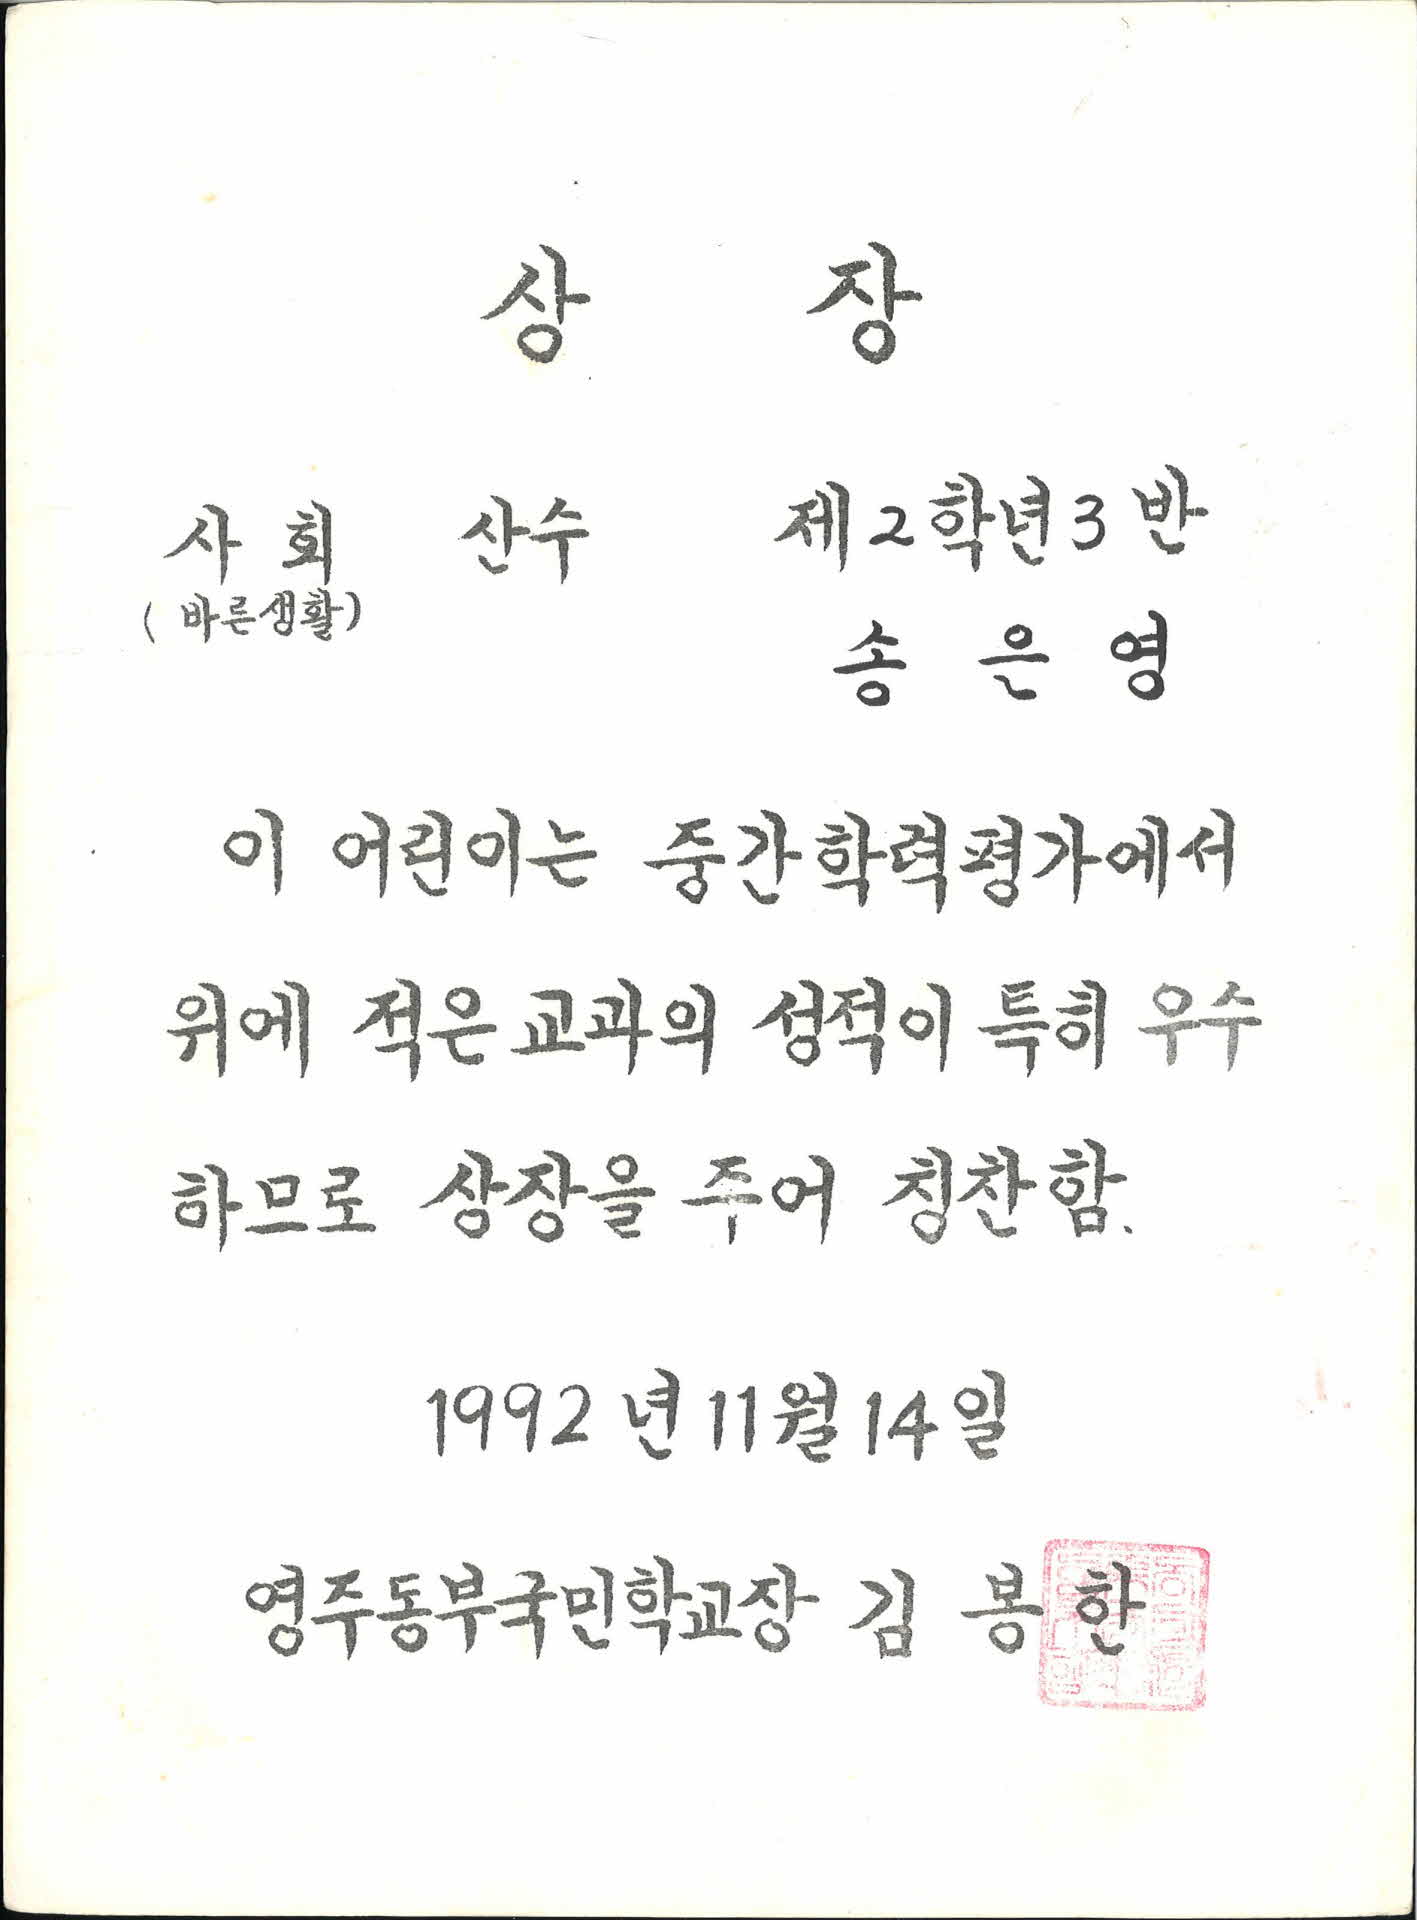 상 장
사 회 산수 제2학년3반
(바른생활)
송 은 영
이 어린이는 중간학력평가에서
위에 적은 교과의 성적이 특히 우수
하므로 상장을 주어 칭찬함.
1992년 11월 14일
영주동부국민학교장 김 봉 한